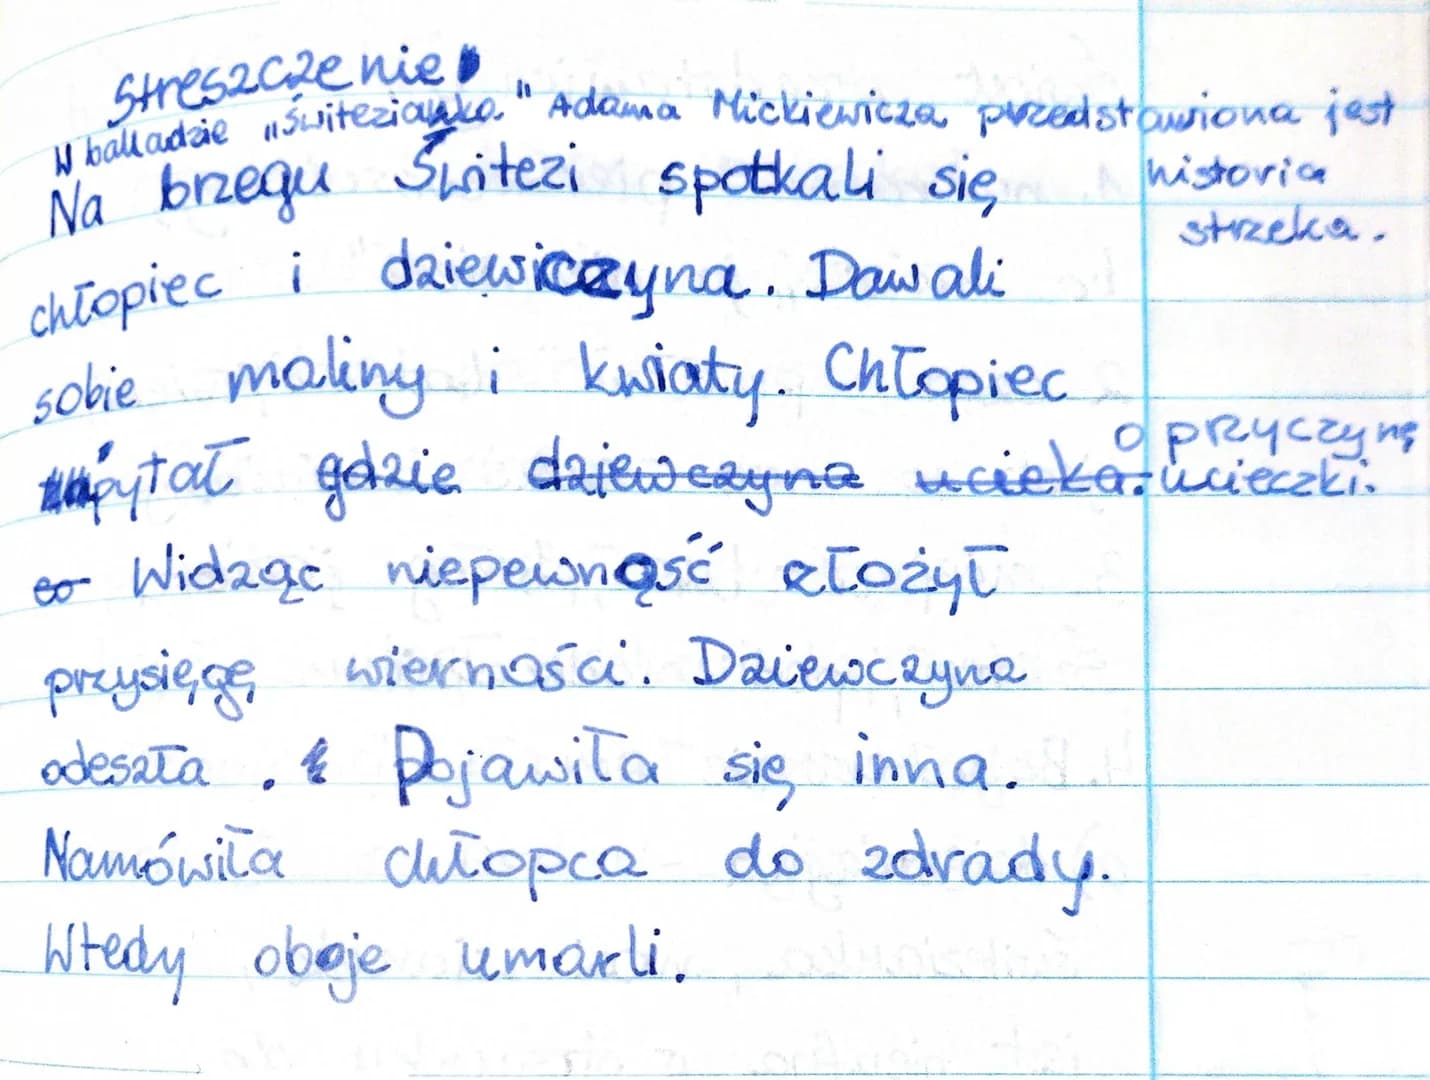 Streszczenie
W balladzie „Świtezianka" Adama Mickiewicza przedstawiona jest
historia
strzeka.
Na brzegu Świtezi spotkali się
chłopiec i dziewczyna. Dawali
sobie maliny i kwiaty. Chłopiec
pytał gdzie dziewczyna ucieka. o przyczynę
ucieczki.
co Widząc niepewność złożył
przysięgę wierności. Dziewczyna
odeszła. Pojawiła się inna.
Namówiła chłopca do zdrady.
Wtedy oboje umarli.